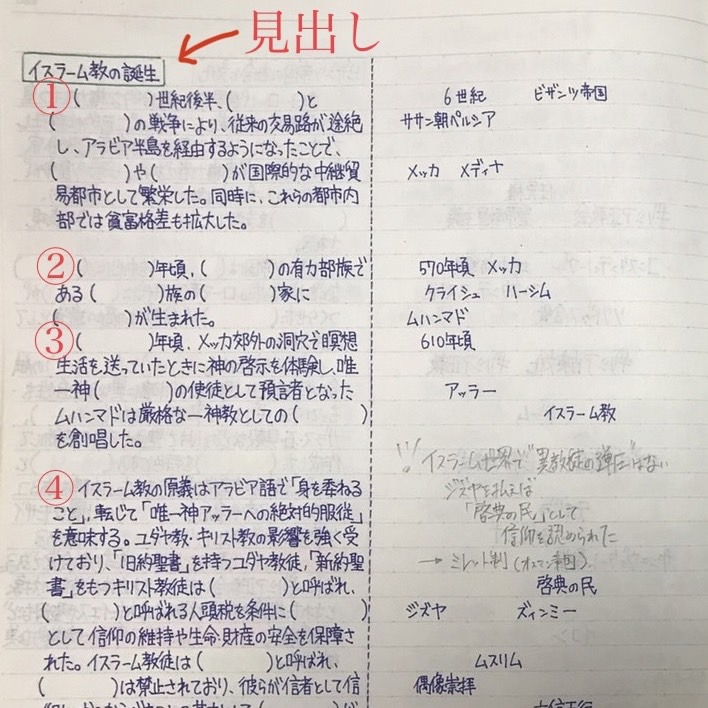 見出し
イスラーム教の誕生
① (　　　)世紀後半、(　　　)と
6世紀　ビザンツ帝国
(　　　)の戦争により、従来の交易路が途絶
ササン朝ペルシア
し、アラビア半島を経由するようになったことで、
(　　　)や(　　　)が国際的な中継貿
メッカ　メディナ
易都市として繁栄した。同時に、これらの都市内
部では貧富格差も拡大した。
② (　　　)年頃、(　　　)の有力部族で
570年頃　メッカ
ある(　　　)族の(　　　)家に
クライシュ　ハーシム
(　　　)が生まれた。
ムハンマド
③ (　　　)年頃、メッカ郊外の洞穴で瞑想
610年頃
生活を送っていたときに神の啓示を体験し、唯
一神(　　　)の使徒として預言者となった
アッラー
ムハンマドは厳格な一神教としての(　　　)
イスラーム教
を創唱した。
!! イスラーム世界で"異教徒の弾圧"はない
④ イスラーム教の原義はアラビア語で「身を委ねる
ジズヤを払えば
こと」、転じて「唯一神アッラーへの絶対的服従」
「啓典の民」として
を意味する。ユダヤ教・キリスト教の影響を強く受
信仰を認められた
けており、「旧約聖書」を持つユダヤ教徒、「新約聖
→ ミレット制(オスマン帝国)
書」をもつキリスト教徒は(　　　)と呼ばれ、
啓典の民
(　　　)と呼ばれる人頭税を条件に(　　　)
ジズヤ　ズィンミー
として信仰の維持や生命・財産の安全を保障さ
れた。イスラーム教徒は(　　　)と呼ばれ、
ムスリム
(　　　)は禁止されており、彼らが信者として信
偶像崇拝